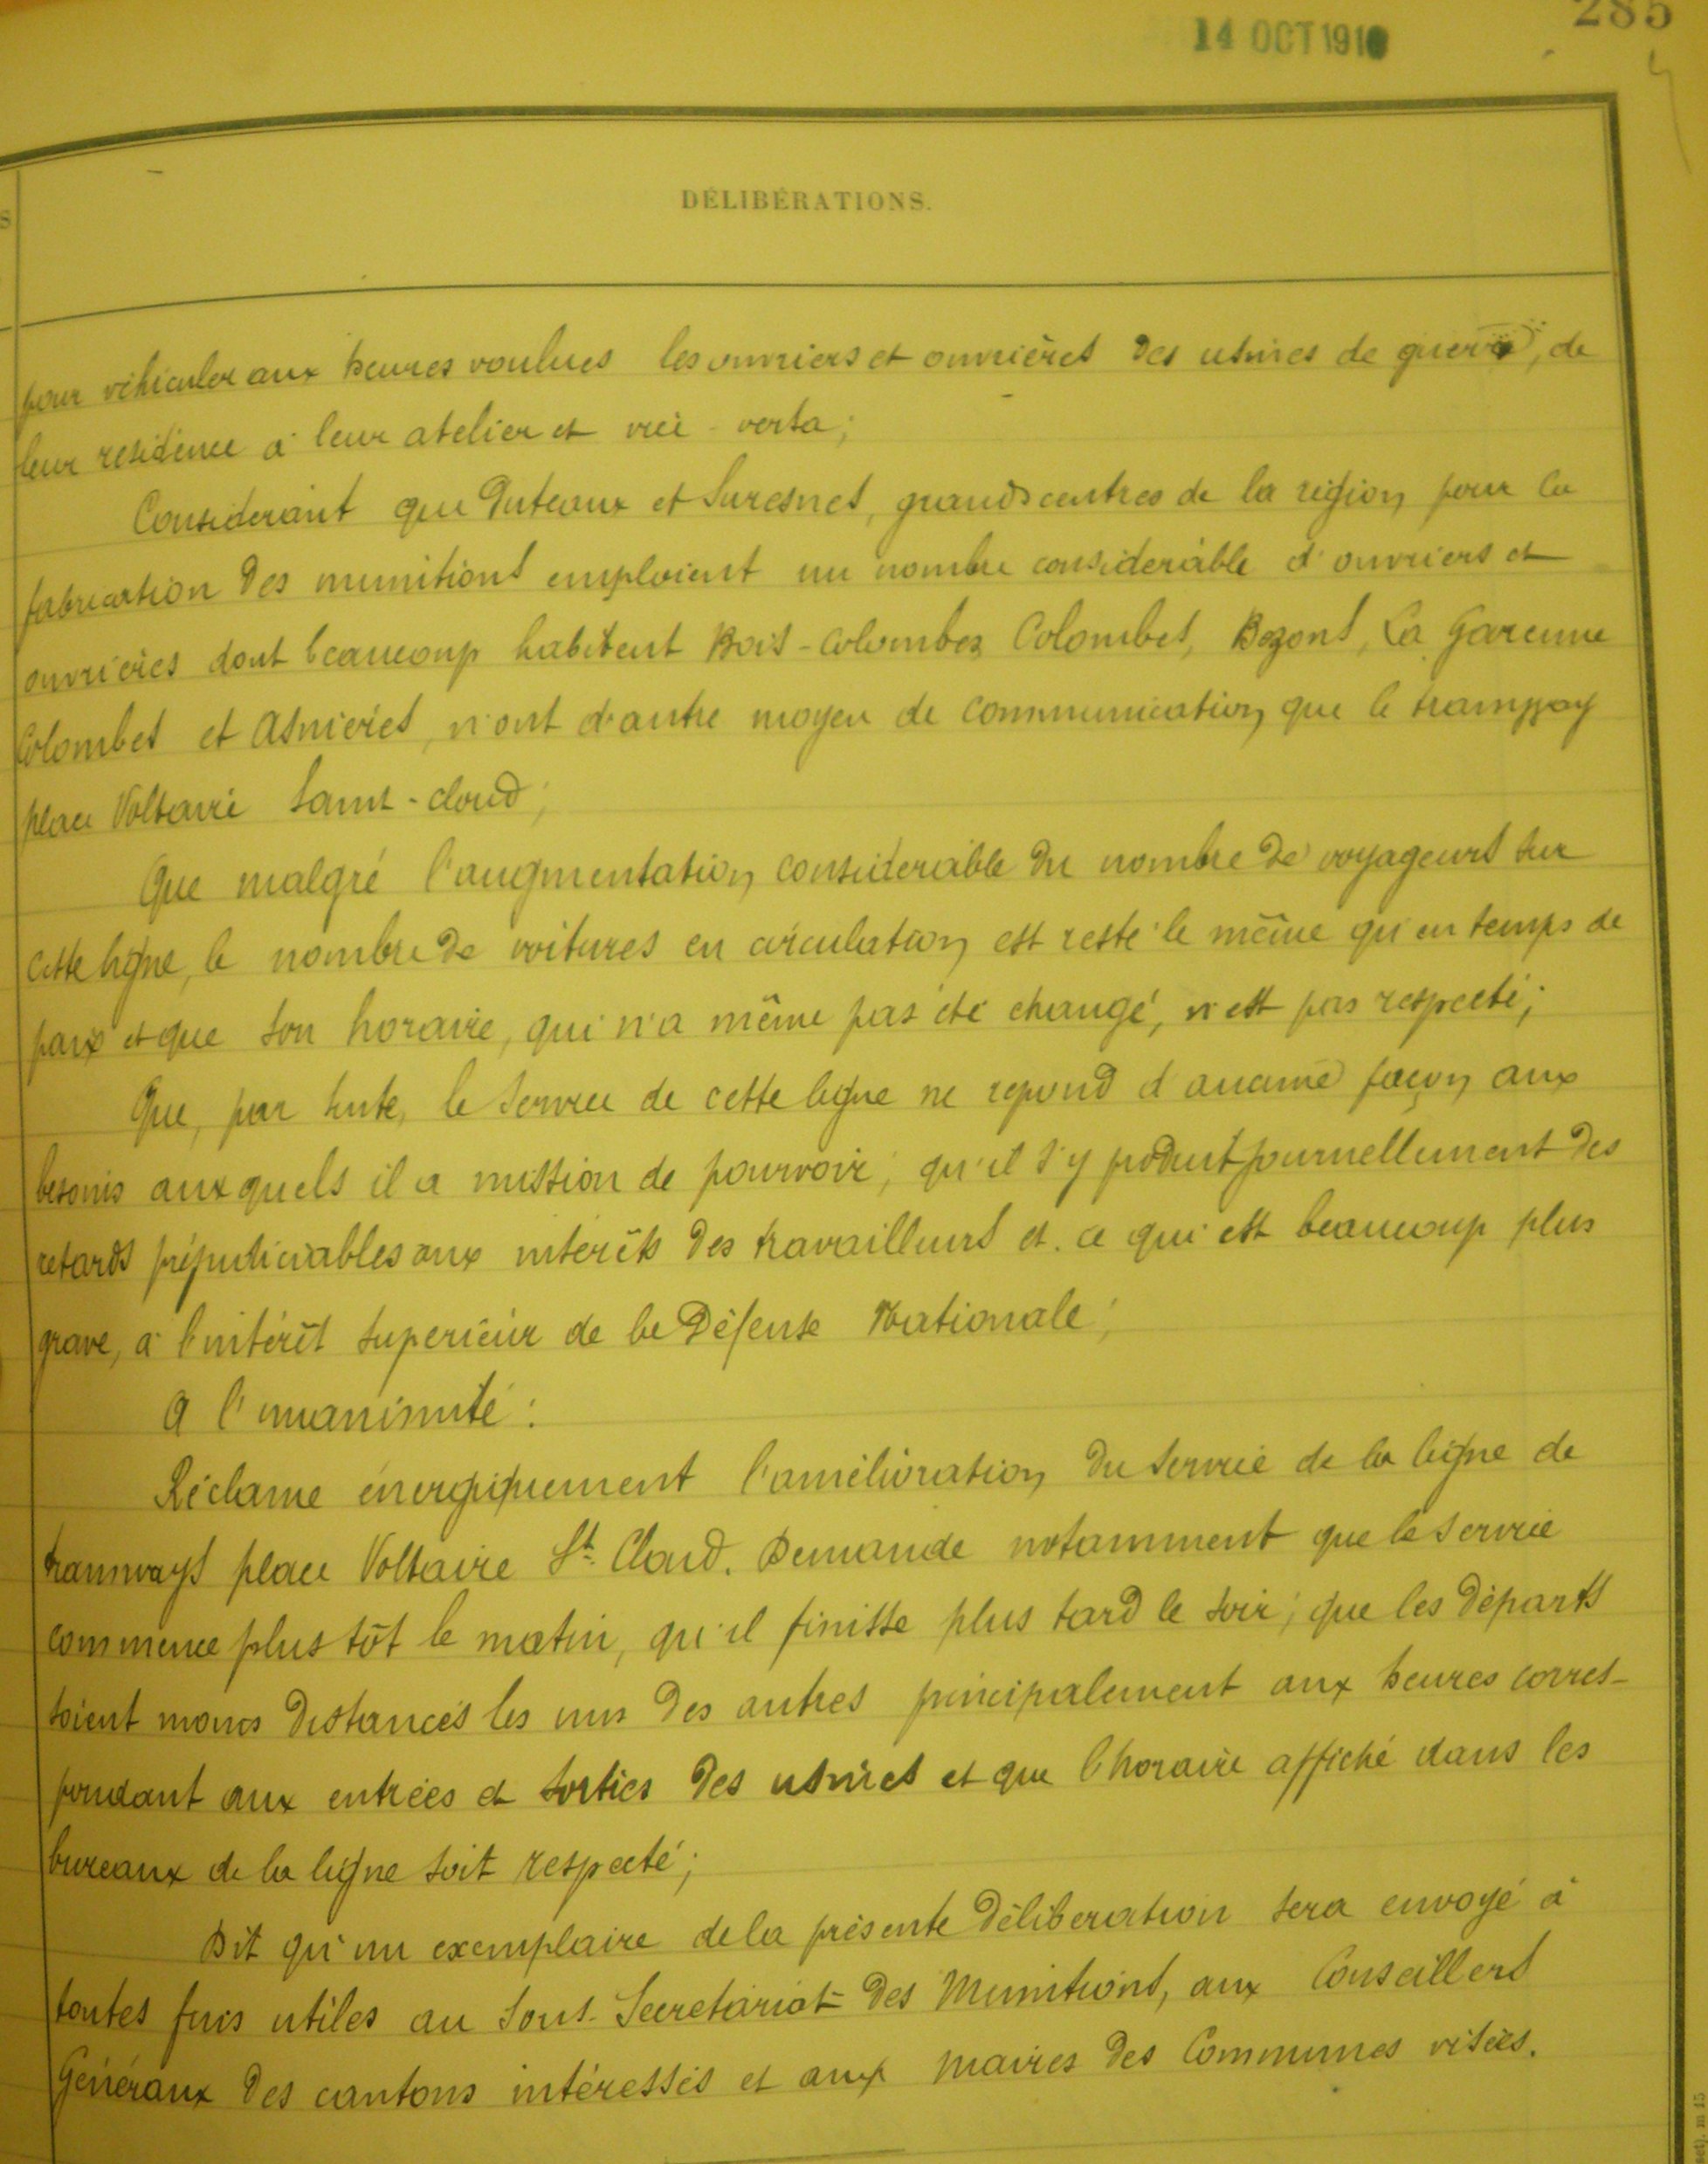 285
14 OCT 1916
DÉLIBÉRATIONS.
pour véhiculer aux heures voulues les ouvriers et ouvrières des usines de guerre, de
leur résidence à leur atelier et vice-versa;
Considérant que Puteaux et Suresnes, grands centres de la région pour la
fabrication des munitions emploient un nombre considérable d'ouvriers et
ouvrières dont beaucoup habitent Bois-Colombes Colombes, Bezons, La Garenne
Colombes et Asnières, n'ont d'autre moyen de communication que le tramway
place Voltaire Saint-Cloud;
Que malgré l'augmentation considérable du nombre de voyageurs sur
cette ligne, le nombre de voitures en circulation est resté le même qu'en temps de
paix et que son horaire, qui n'a même pas été changé, n'est pas respecté;
Que, par suite, le service de cette ligne ne répond d'aucune façon aux
besoins auxquels il a mission de pourvoir; qu'il s'y produit journellement des
retards préjudiciables aux intérêts des travailleurs et. ce qui est beaucoup plus
grave, à l'intérêt supérieur de la Défense Nationale;
A l'unanimité:
Réclame énergiquement l'amélioration du service de la ligne de
tramways place Voltaire St. Cloud. Demande notamment que le service
commence plus tôt le matin, qu'il finisse plus tard le soir; que les départs
soient moins distancés les uns des autres principalement aux heures corres-
pondant aux entrées et sorties des usines et que l'horaire affiché dans les
bureaux de la ligne soit respecté;
Dit qu'un exemplaire de la présente délibération sera envoyé à
toutes fins utiles au Sous-Secrétariat des Munitions, aux Conseillers
Généraux des cantons intéressés et aux Maires des Communes visées.